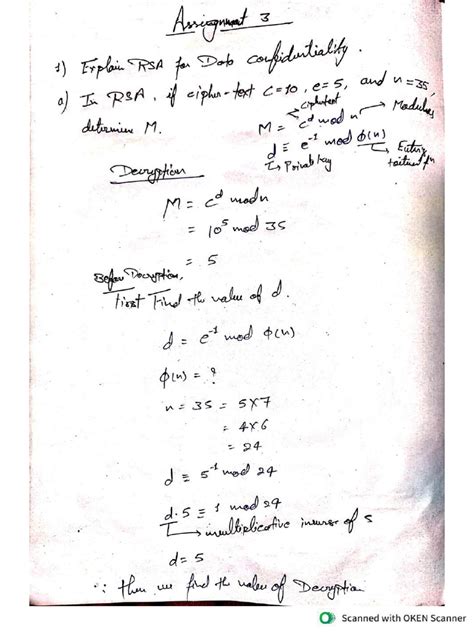 Assignment 3
1) Explain RSA for Data confidentiality.
a) In RSA, if cipher-text C=10, e=5, and n=35,
determine M.
ciphertext
M = c^d mod n → Modulus
d ≡ e^-1 mod ϕ(n)
↳ Private key
Decryption
M = c^d mod n
= 10^5 mod 35
= 5
Before Decryption,
First Find the value of d.
d = e^-1 mod ϕ(n)
ϕ(n) = ?
n = 35 = 5x7
= 4x6
= 24
d ≡ 5^-1 mod 24
d.5 ≡ 1 mod 24
↳ multiplicative inverse of 5
d=5
∴ then we find the value of Decryption
Scanned with OKEN Scanner